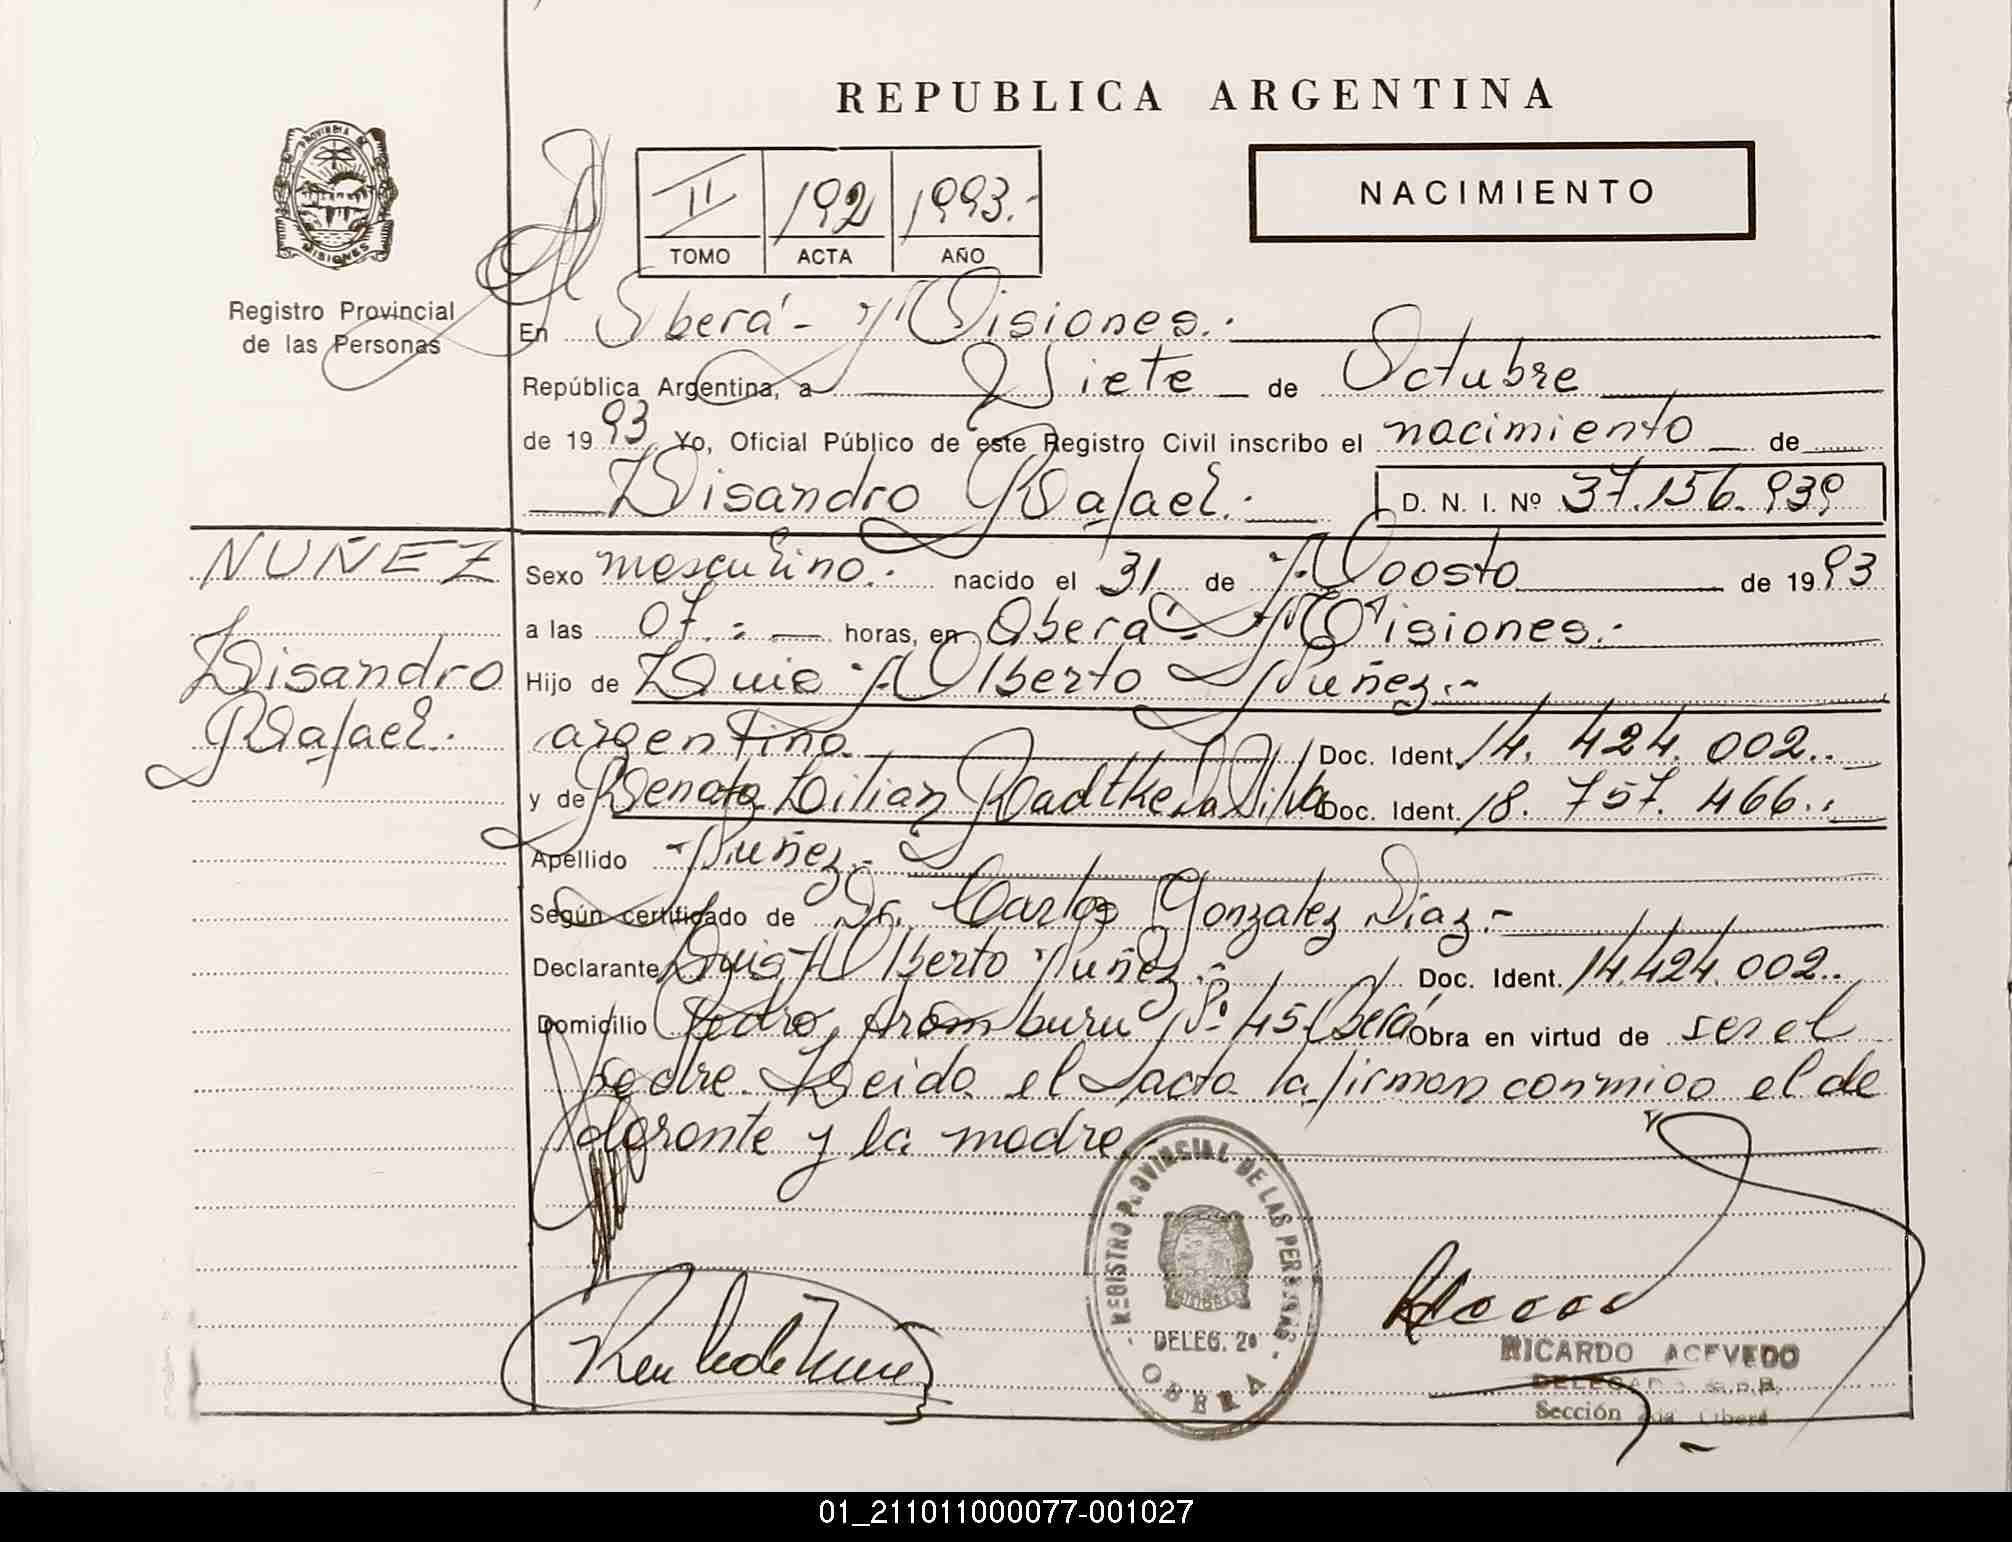 REPUBLICA ARGENTINA
PROVINCIA DE
MISIONES
Registro Provincial
de las Personas
II 192 1993.-
TOMO ACTA AÑO
NACIMIENTO
En Oberá - Misiones.-
República Argentina, a Siete de Octubre
de 1993 Yo, Oficial Público de este Registro Civil inscribo el nacimiento de
Lisandro Rafael.- D. N. I. Nº 37.156.939
NUÑEZ
Lisandro
Rafael.-
Sexo masculino.- nacido el 31 de Agosto de 1993
a las 07.- horas, en Oberá - Misiones.-
Hijo de Luis Alberto Nuñez.-
argentino Doc. Ident. 14.424.002.-
y de Renata Lilian Radtke Da Silva Doc. Ident. 18.757.466.-
Apellido Nuñez.-
Según certificado de Dr. Carlos Gonzalez Diaz.-
Declarante Luis Alberto Nuñez.- Doc. Ident. 14.424.002.-
Domicilio Pedro Aramburu Nº 45 Oberá Obra en virtud de ser el
padre. Leida el acta la firman conmigo el de
clarante y la madre.-
REGISTRO PROVINCIAL DE LAS PERSONAS
MISIONES
DELEG. 2ª
OBERA
RICARDO ACEVEDO
Sección 2da. Oberá
01_211011000077-001027